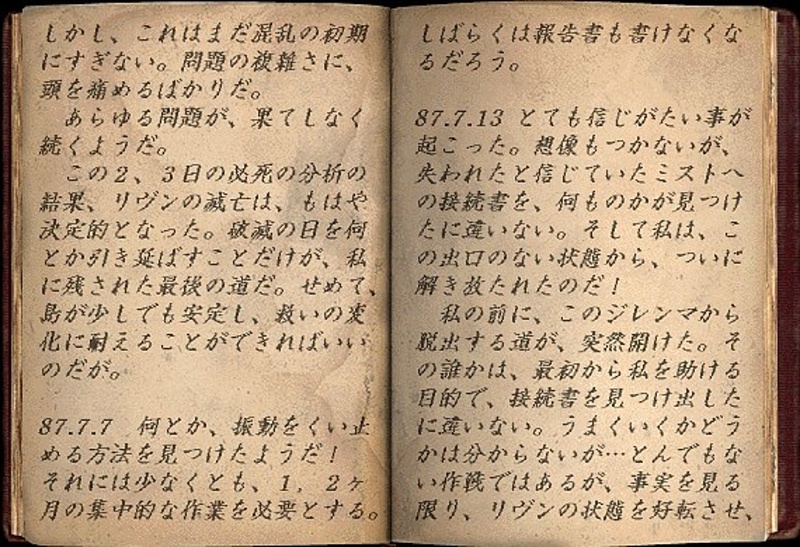 しかし、これはまだ混乱の初期
にすぎない。問題の複雑さに、
頭を痛めるばかりだ。
あらゆる問題が、果てしなく
続くようだ。
この2、3日の必死の分析の
結果、リヴンの滅亡は、もはや
決定的となった。破滅の日を何
とか引き延ばすことだけが、私
に残された最後の道だ。せめて、
島が少しでも安定し、救いの変
化に耐えることができればいい
のだが。
87.7.7 何とか、振動をくい止
める方法を見つけたようだ!
それには少なくとも、1,2ヶ
月の集中的な作業を必要とする。
しばらくは報告書も書けなくな
るだろう。
87.7.13 とても信じがたい事が
起こった。想像もつかないが、
失われたと信じていたミストへ
の接続書を、何ものかが見つけ
たに違いない。そして私は、こ
の出口のない状態から、ついに
解き放たれたのだ!
私の前に、このジレンマから
脱出する道が、突然開けた。そ
の誰かは、最初から私を助ける
目的で、接続書を見つけ出した
に違いない。うまくいくかどう
かは分からないが…とんでもな
い作戦ではあるが、事実を見る
限り、リヴンの状態を好転させ、